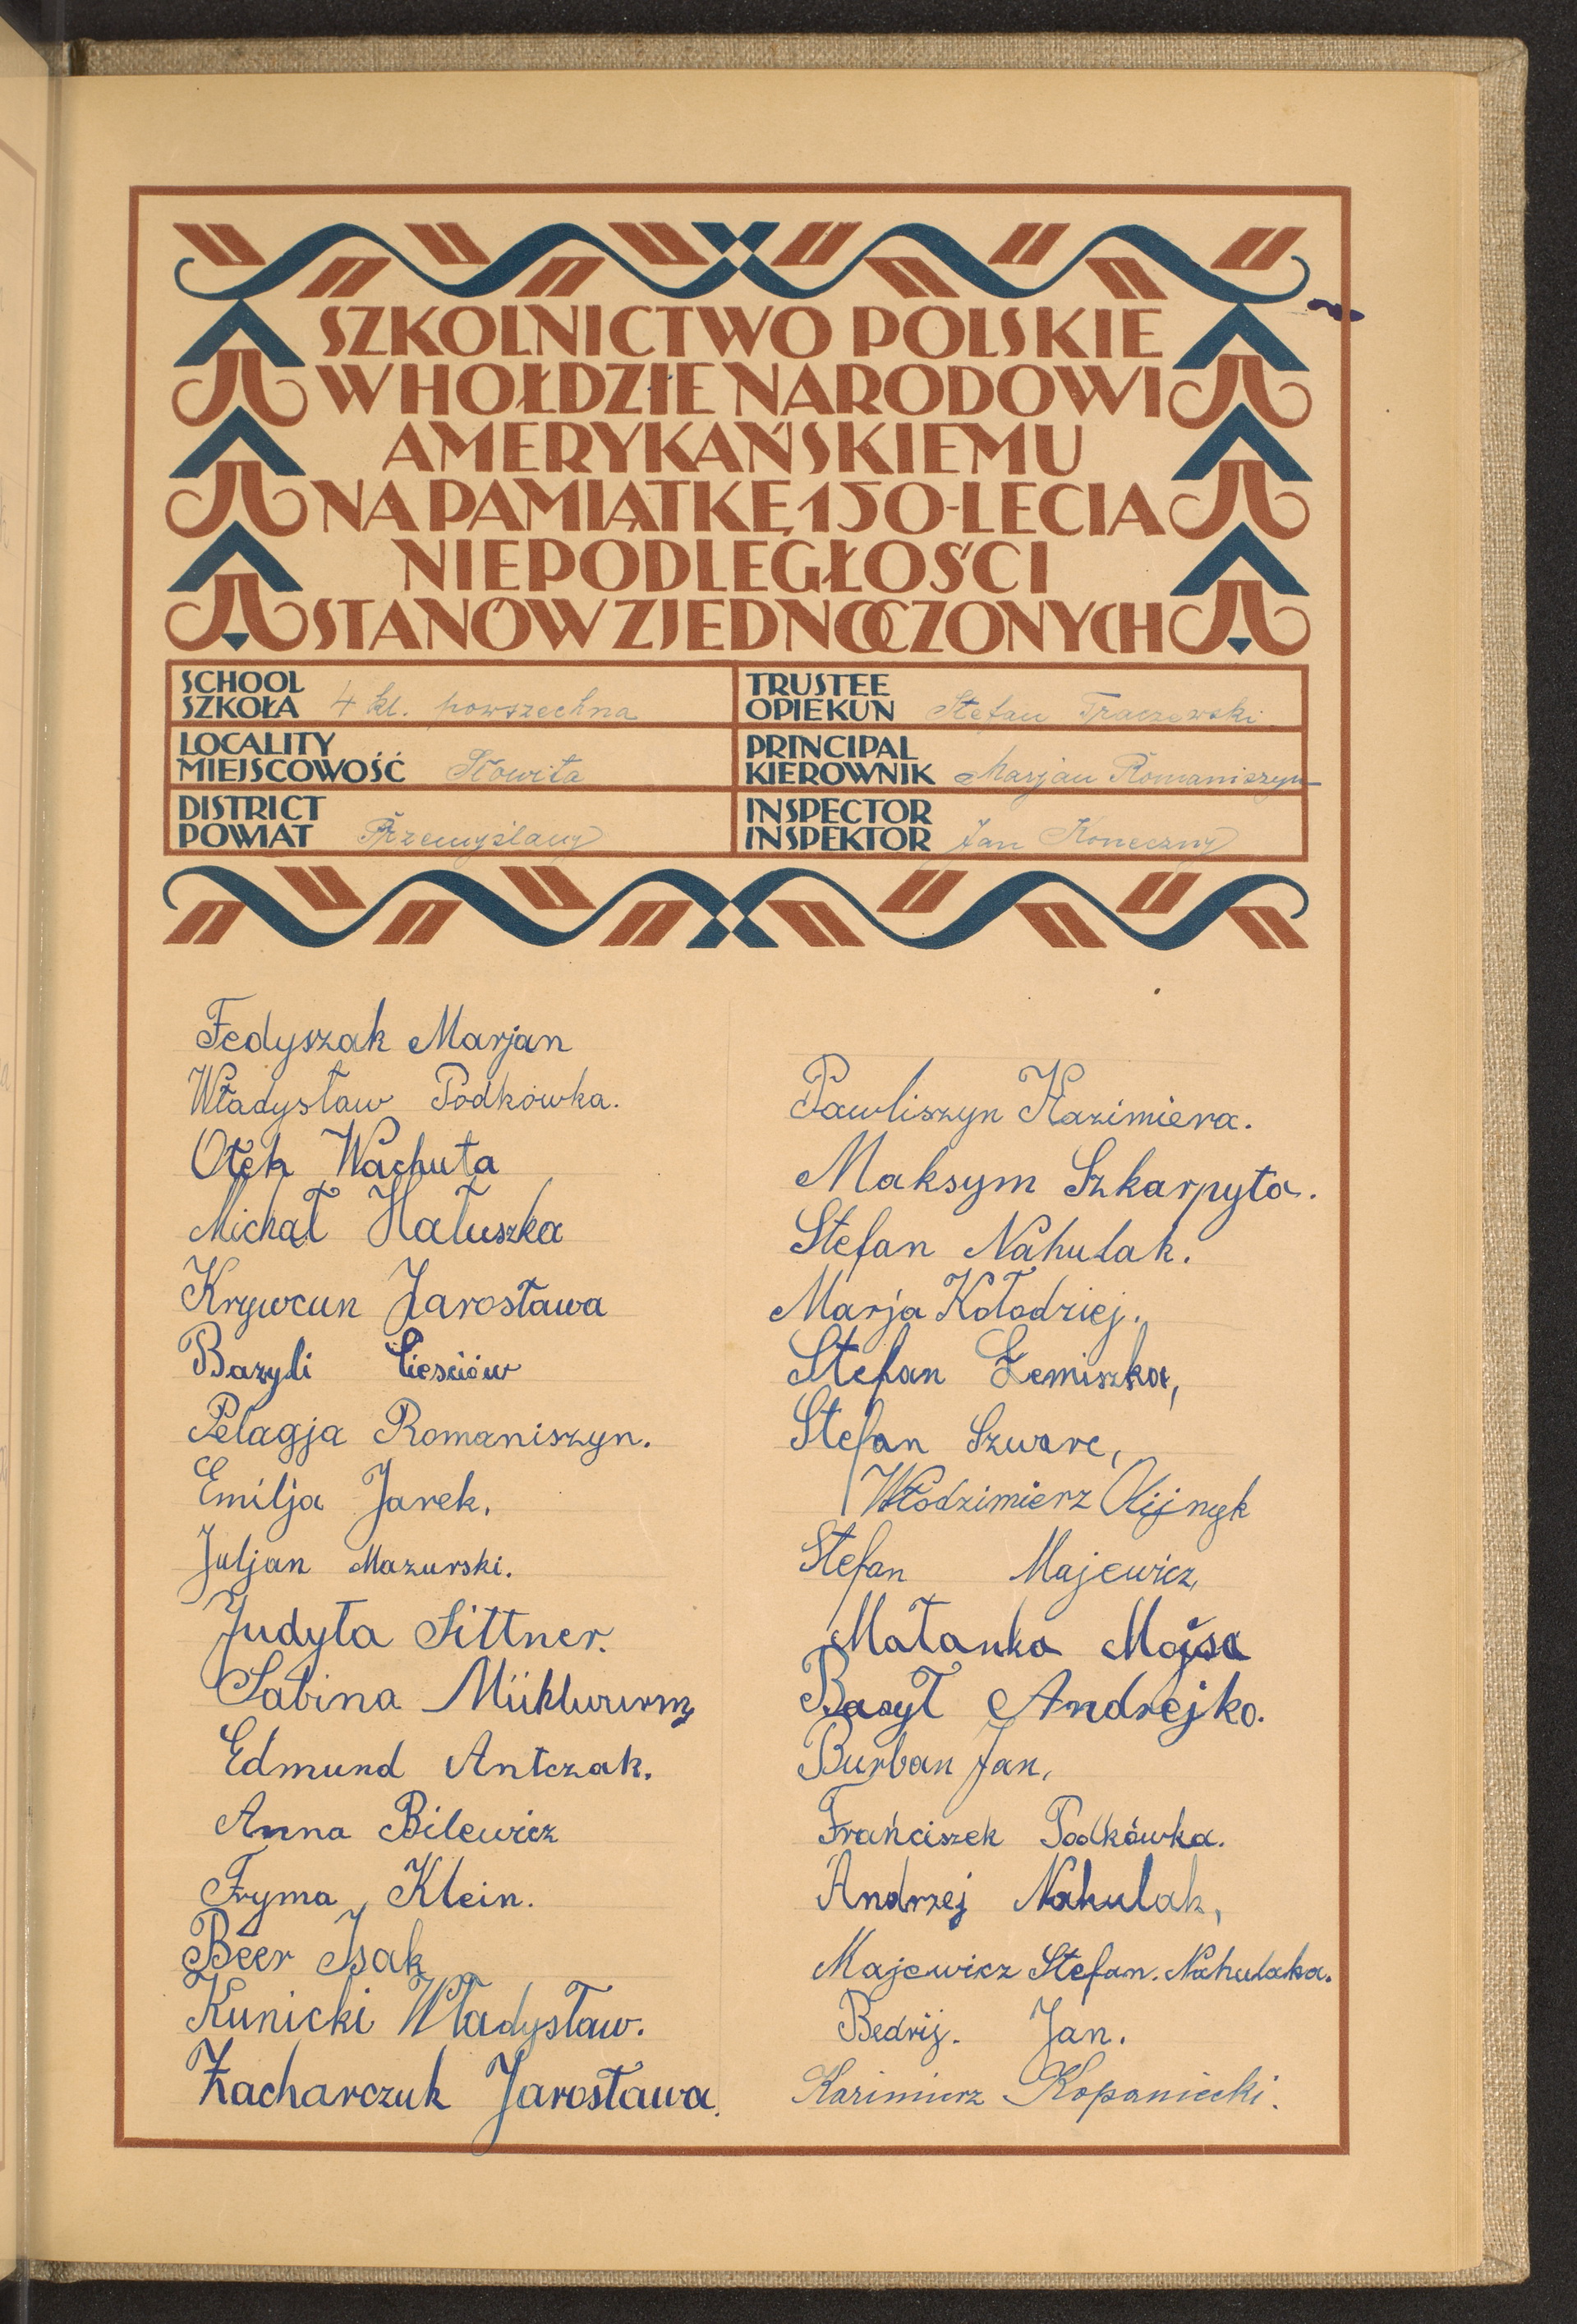 SZKOLNICTWO POLSKIE
W HOŁDZIE NARODOWI
AMERYKAŃSKIEMU
NA PAMIĄTKĘ 150-LECIA
NIEPODLEGŁOŚCI
STANÓW ZJEDNOCZONYCH
SCHOOL
SZKOŁA 4 kl. powszechna
TRUSTEE
OPIEKUN Stefan Traczewski
LOCALITY
MIEJSCOWOŚĆ Słowita
PRINCIPAL
KIEROWNIK Marjan Romaniszyn
DISTRICT
POWIAT Przemyślany
INSPECTOR
INSPEKTOR Jan Koneczny
Fedyszak Marjan
Władysław Podkówka.
Otek Wachuta
Michał Hałuszka
Krywcun Jarosława
Bazyli
Pelagja Romaniszyn.
Emilja Jarek.
Juljan Mazurski.
Judyta Sittner.
Sabina
Edmund Antczak.
Anna Bilewicz
Fryma Klein.
Beer Isak
Kunicki Władysław.
Zacharczuk Jarosława.
Pawliszyn Kazimiera.
Maksym Szkarpyta.
Stefan Nahulak.
Marja Kołodziej.
Stefan Łemiszka,
Stefan Szwarc,
Włodzimierz Olijnyk
Stefan Majewicz,
Małanka Mojsa
Basył Andrejko.
Burban Jan,
Frańciszek Podkówka.
Andrzej Nahulak,
Majewicz Stefan. Nahulaka.
Bedrij. Jan.
Kazimierz Kopaniecki.